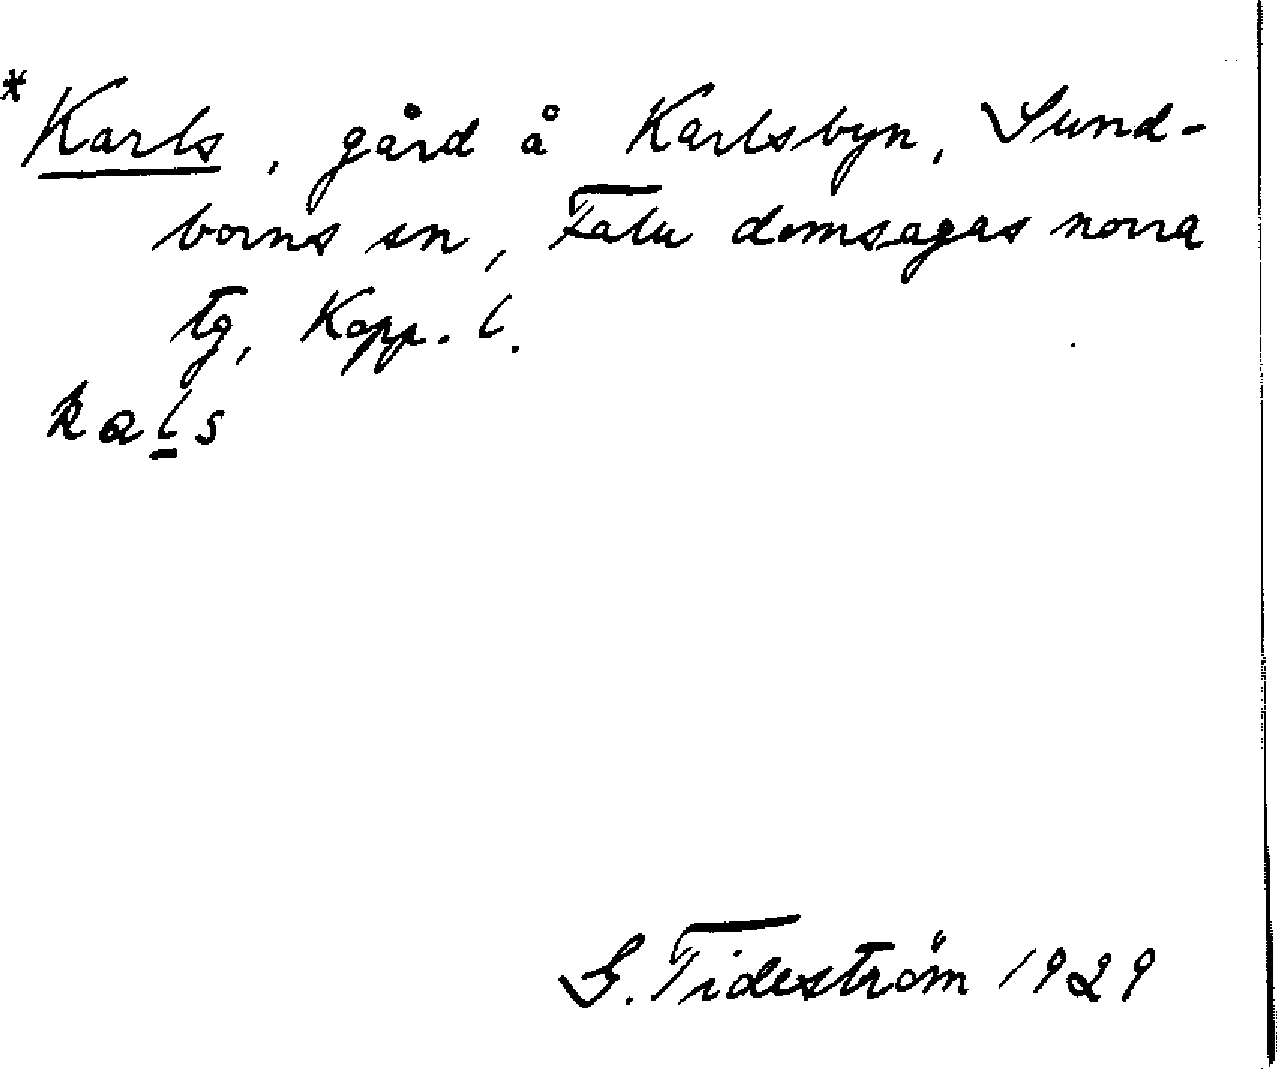 * Karls, gård å Karlsbyn, Sund-
borns sn, Falu domsagas norra
tg, Kopp. l.
kals
G. Tideström 1929